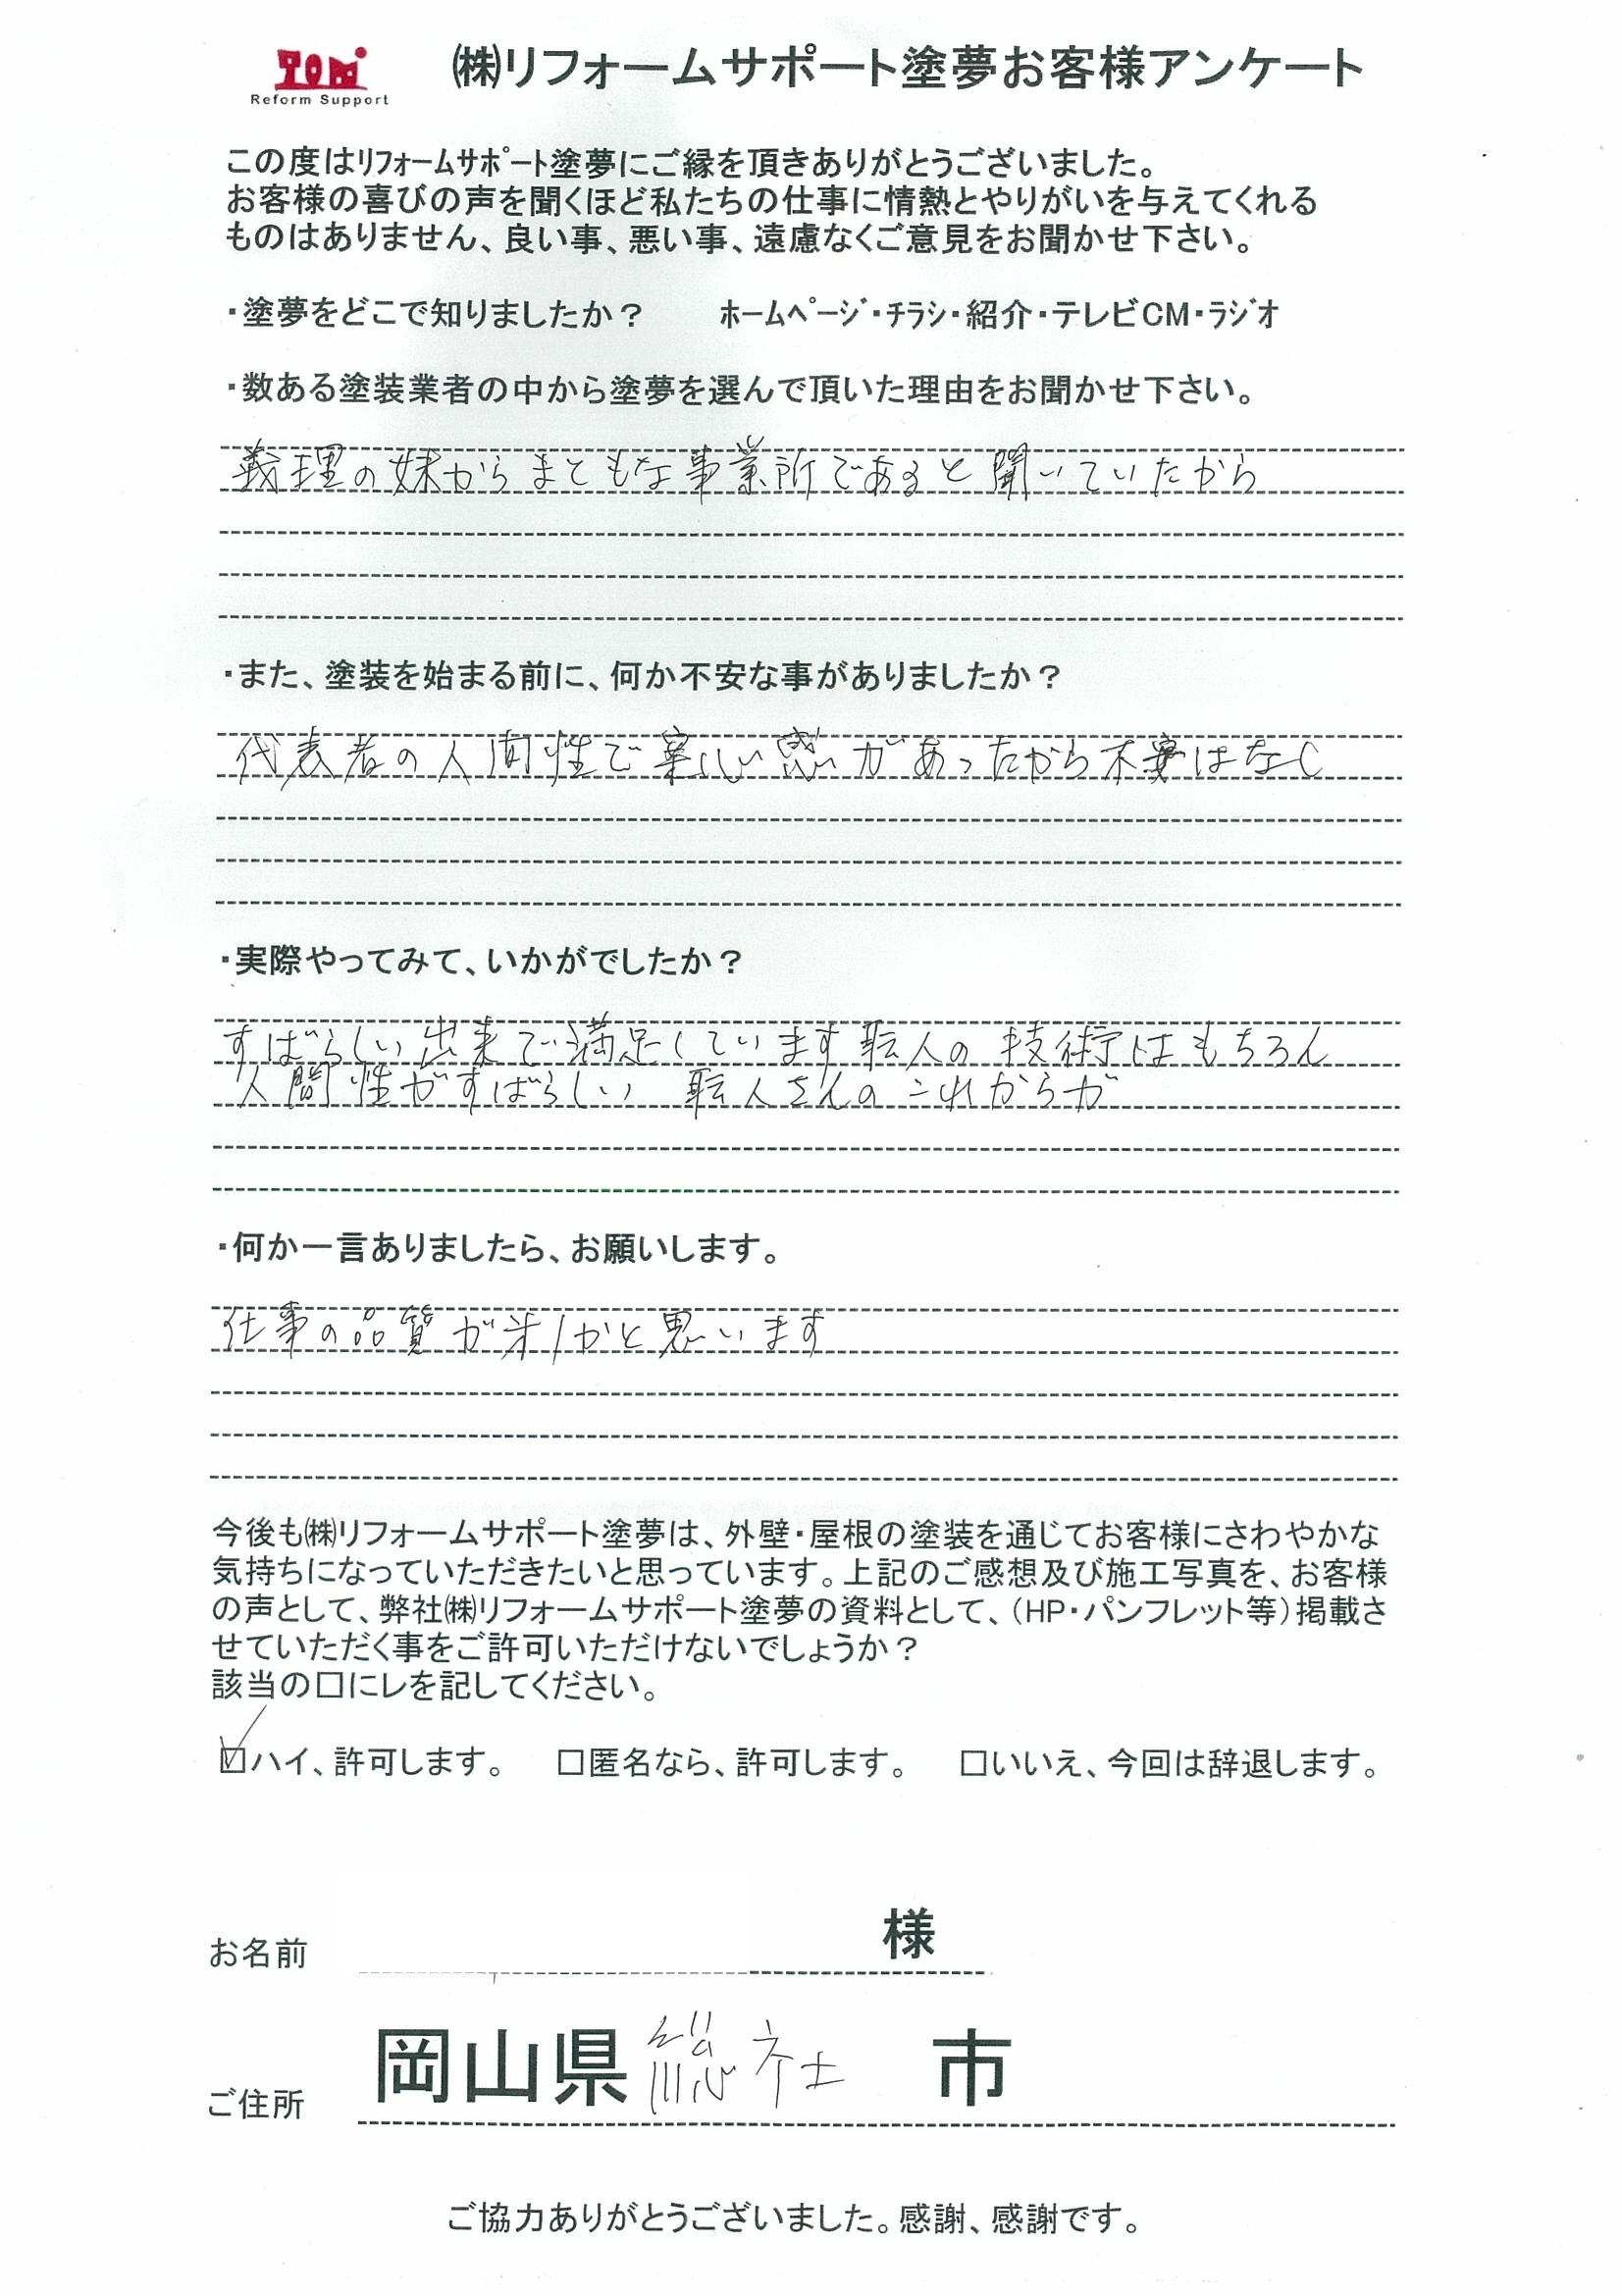 TOM
Reform Support
㈱リフォームサポート塗夢お客様アンケート
この度はﾘﾌｫｰﾑｻﾎﾟｰﾄ塗夢にご縁を頂きありがとうございました。
お客様の喜びの声を聞くほど私たちの仕事に情熱とやりがいを与えてくれる
ものはありません、良い事、悪い事、遠慮なくご意見をお聞かせ下さい。
・塗夢をどこで知りましたか？ ﾎｰﾑﾍﾟｰｼﾞ・ﾁﾗｼ・紹介・テレビCM・ﾗｼﾞｵ
・数ある塗装業者の中から塗夢を選んで頂いた理由をお聞かせ下さい。
義理の妹からまともな事業所であると聞いていたから
・また、塗装を始まる前に、何か不安な事がありましたか？
代表者の人間性で 感があったから不安はなし
・実際やってみて、いかがでしたか？
すばらしい出来で満足しています職人の技術はもちろん
人間性がすばらしい 職人さんのこれからが
・何か一言ありましたら、お願いします。
仕事の品質が かと思います
今後も㈱リフォームサポート塗夢は、外壁・屋根の塗装を通じてお客様にさわやかな
気持ちになっていただきたいと思っています。上記のご感想及び施工写真を、お客様
の声として、弊社㈱リフォームサポート塗夢の資料として、（HP・パンフレット等）掲載さ
せていただく事をご許可いただけないでしょうか？
該当の□にレを記してください。
☑ハイ、許可します。 □匿名なら、許可します。 □いいえ、今回は辞退します。
お名前 様
ご住所 岡山県総社市
ご協力ありがとうございました。感謝、感謝です。